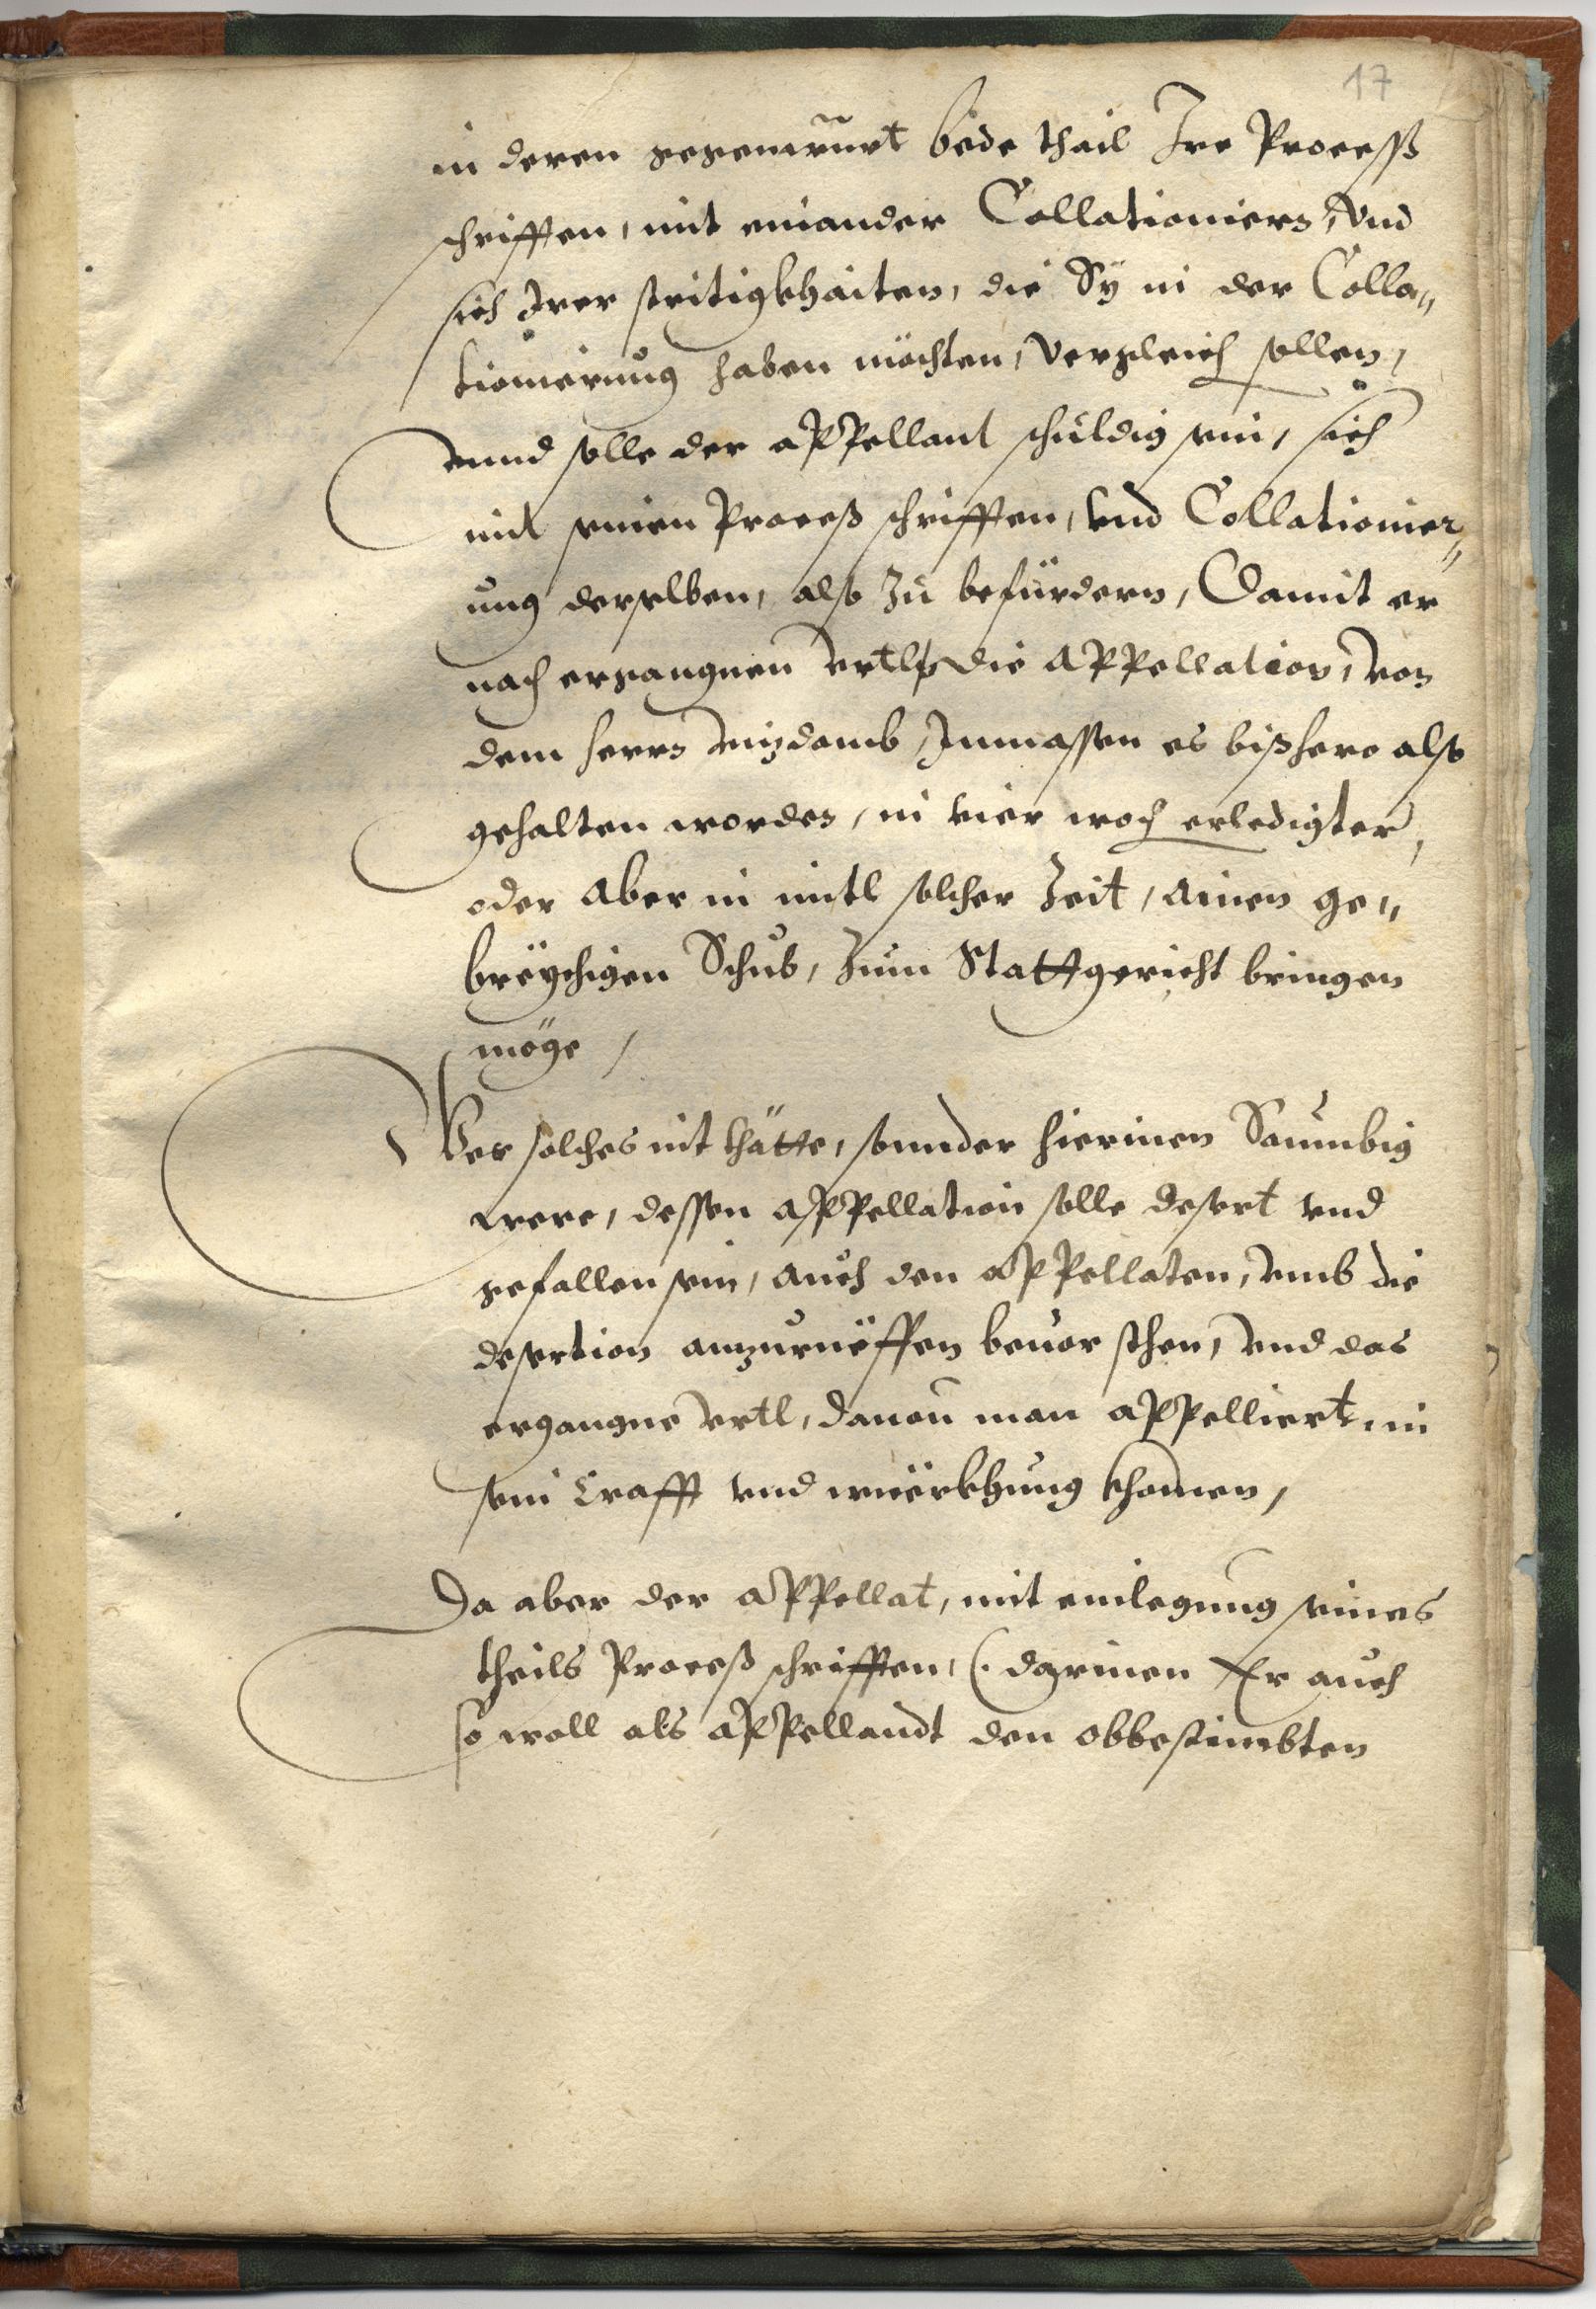 17
in deren gegenwurt bede thail Ire Process
schrifften, mit einander Collationiern, Vnd
sich Irer stritigkhaiten, die Sÿ in der Colla„
tionierung haben möchten, Vergleich sollen,
vnnd solle der appellant schuldig sein, sich
mit seinen Proceß schrifften, vnd Collationier„
ung derselben, also Zu befürdern, Damit er
nach ergangnen vrtls die appellation, von
dem herrn vizdomb, Inmassen es bißhero also
gehalten worden, in vier woch erledigter,
oder aber in mitl solcher Zeit, ainen ge„
breÿchigen Schub, Zum Stattgericht bringen
möge,
Wer solches nit thätte, sonnder hierinen Saumbig
were, dessen appellation solle desert vnd
gefallen sein, auch den appellaten, vmb die
desertion anzurüeffen beuor sthen, vnd das
ergangne vrtl, dauon man appelliert, in
sein Crafft vnd würkhung khomen,
Da aber der appellat, mit einlegung seines
theils Proceß schrifften, (. darinen Er auch
so woll als appellandt den obbestimbten